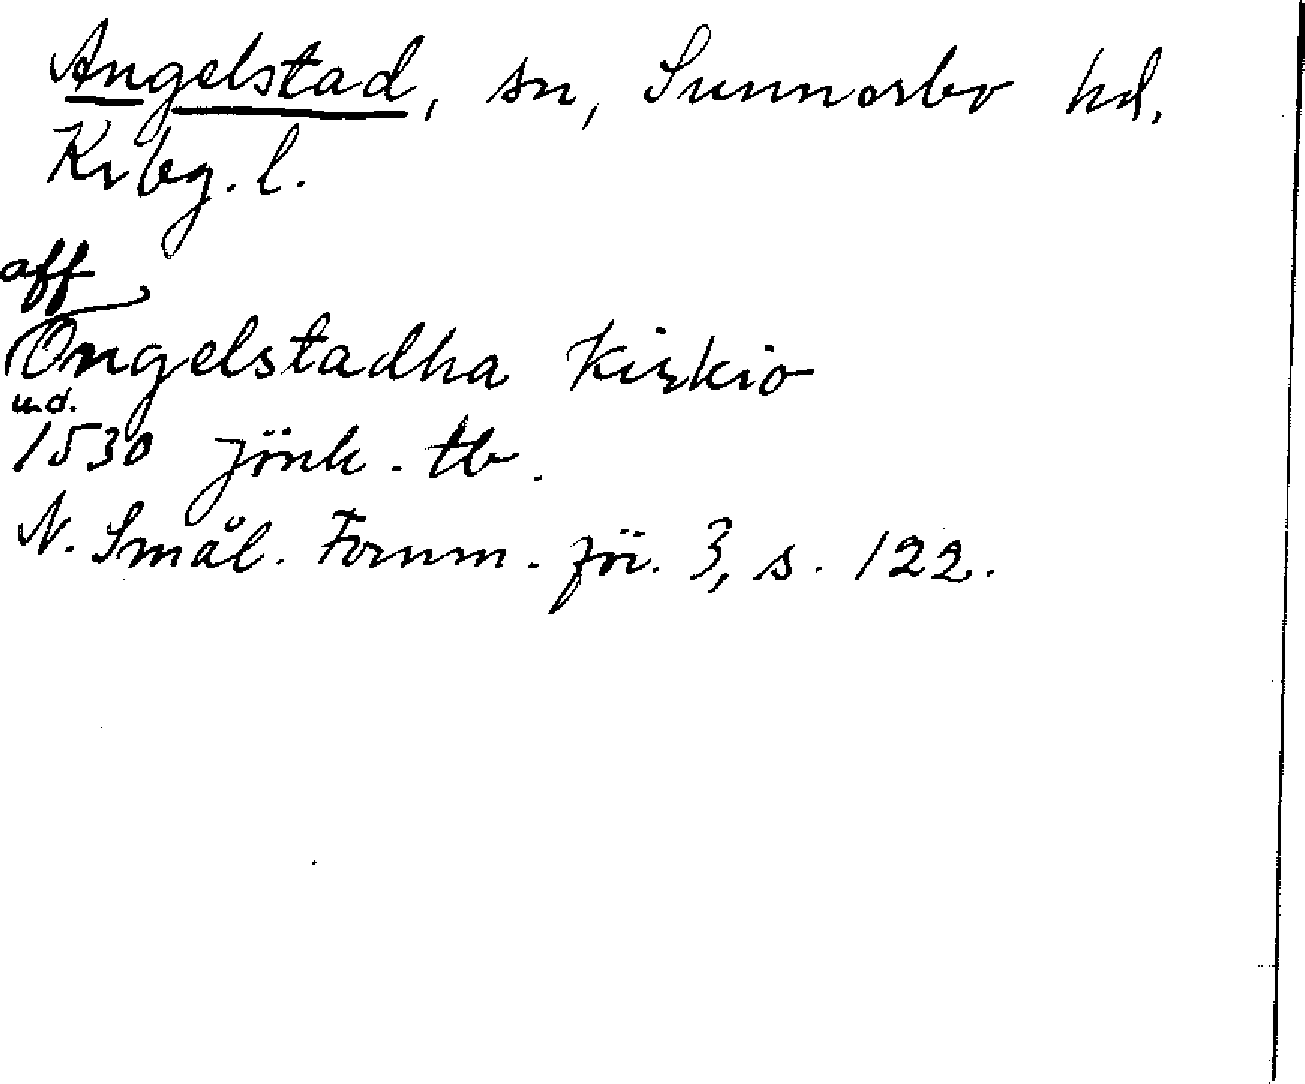 Angelstad, sn, Sunnerbo hd.
Krbg. l.
aff
Ongelstadha Kirkio
u.d.
1530 Jönk. tb.
N. Smål. Fornm. för. 3, s. 122.